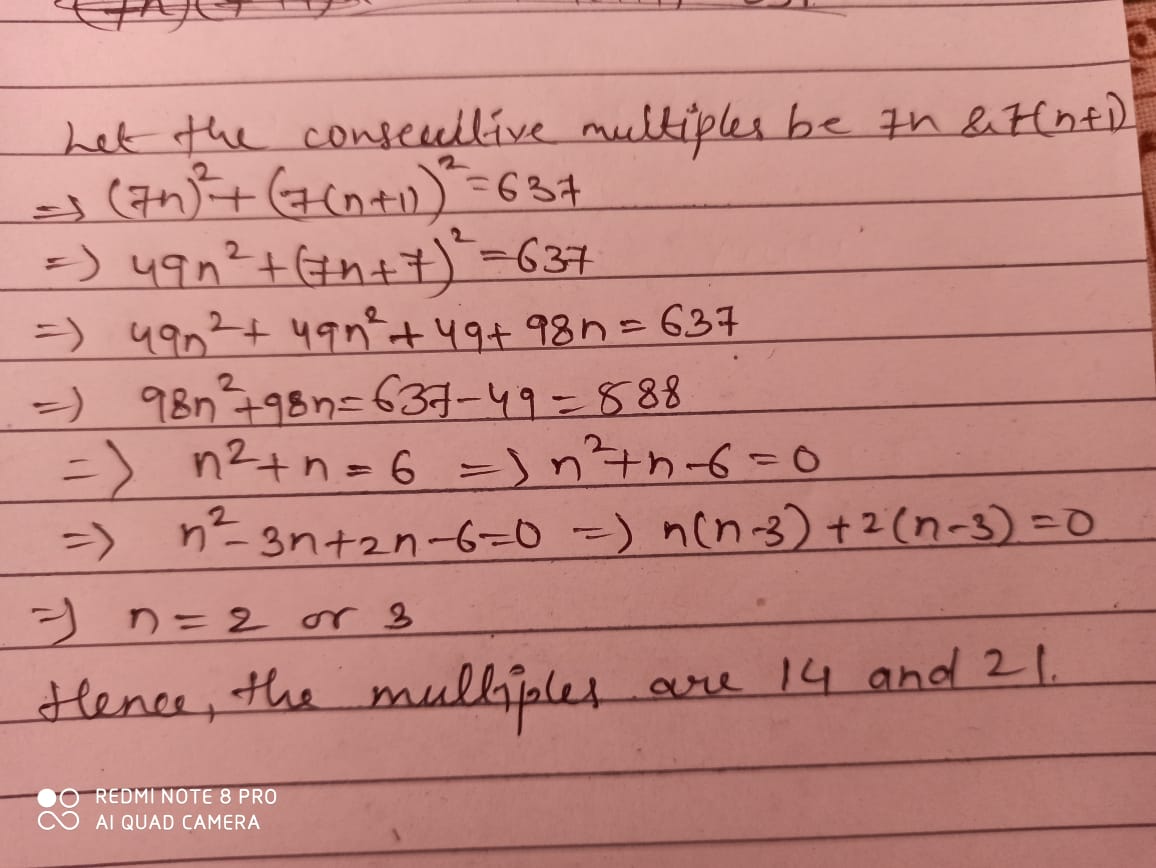 Let the consecutive multiples be 7n & 7(n+1)
=> (7n)²+ (7(n+1))²=637
=> 49n²+(7n+7)²=637
=> 49n²+ 49n²+49+ 98n=637
=> 98n²+98n=637-49=588
=> n²+n=6 => n²+n-6=0
=> n²-3n+2n-6=0 => n(n-3)+2(n-3)=0
=> n=2 or 3
Hence, the multiples are 14 and 21.
REDMI NOTE 8 PRO
AI QUAD CAMERA